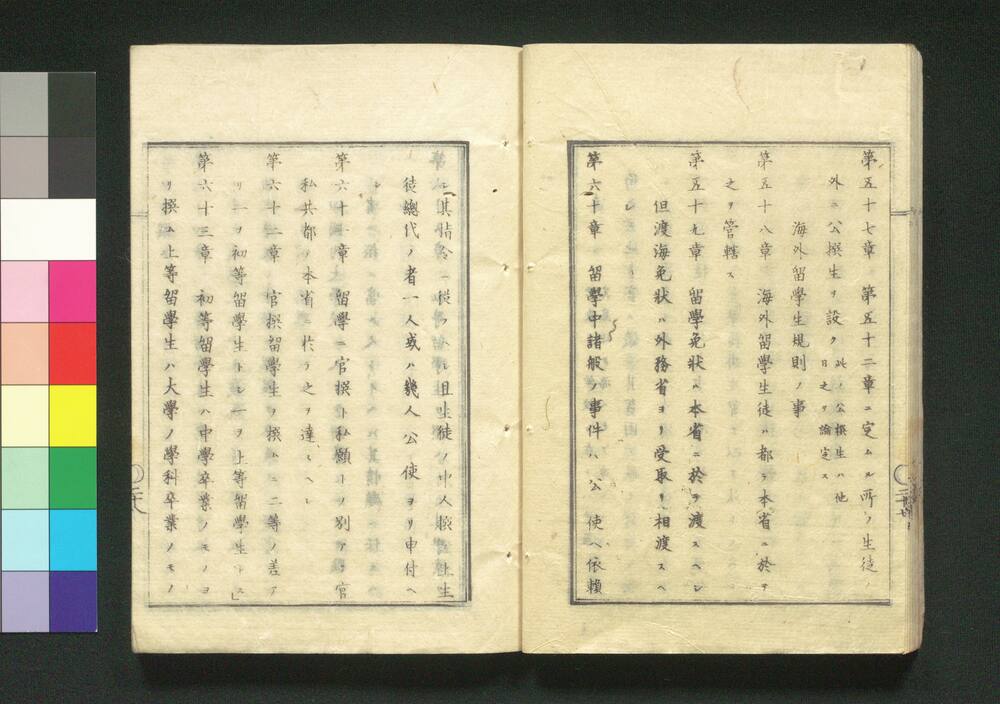 第五十七章　第五十二章ニ定ムル所ノ生徒ノ
外ニ公撰生ヲ設ク此ノ公撰生ハ他日之ヲ論定ス
海外留學生規則ノ事
第五十八章　海外留學生徒ハ都テ本省ニ於テ
之ヲ管轄ス
第五十九章　留學免狀ハ本省ニ於テ渡スヘシ
但渡海免狀ハ外務省ヨリ受取リ相渡スヘ
シ
第六十章　留學中諸般ノ事件ハ公使ヘ依賴
シ其指令ニ從フヘシ且生徒ノ中人撰
徒總代ノ者一人或ハ幾人公使ヨリ申付ヘ
シ
第六十一章　留學ニ官撰ト私願トノ別アリ官
私共都ノ本省ニ於テ之ヲ達スヘシ
第六十二章　官撰留學生ヲ撰ムニ二等ノ差ア
リ一ヲ初等留學生トシ一ヲ上等留學生トス
第六十三章　初等留學生ハ中學卒業ノモノヨ
リ撰ム上等留學生ハ大學ノ學科卒業ノモノ